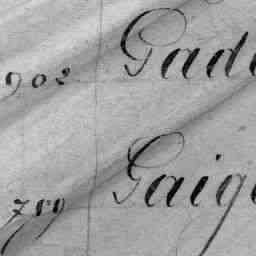 902 Gad
759 Gaig